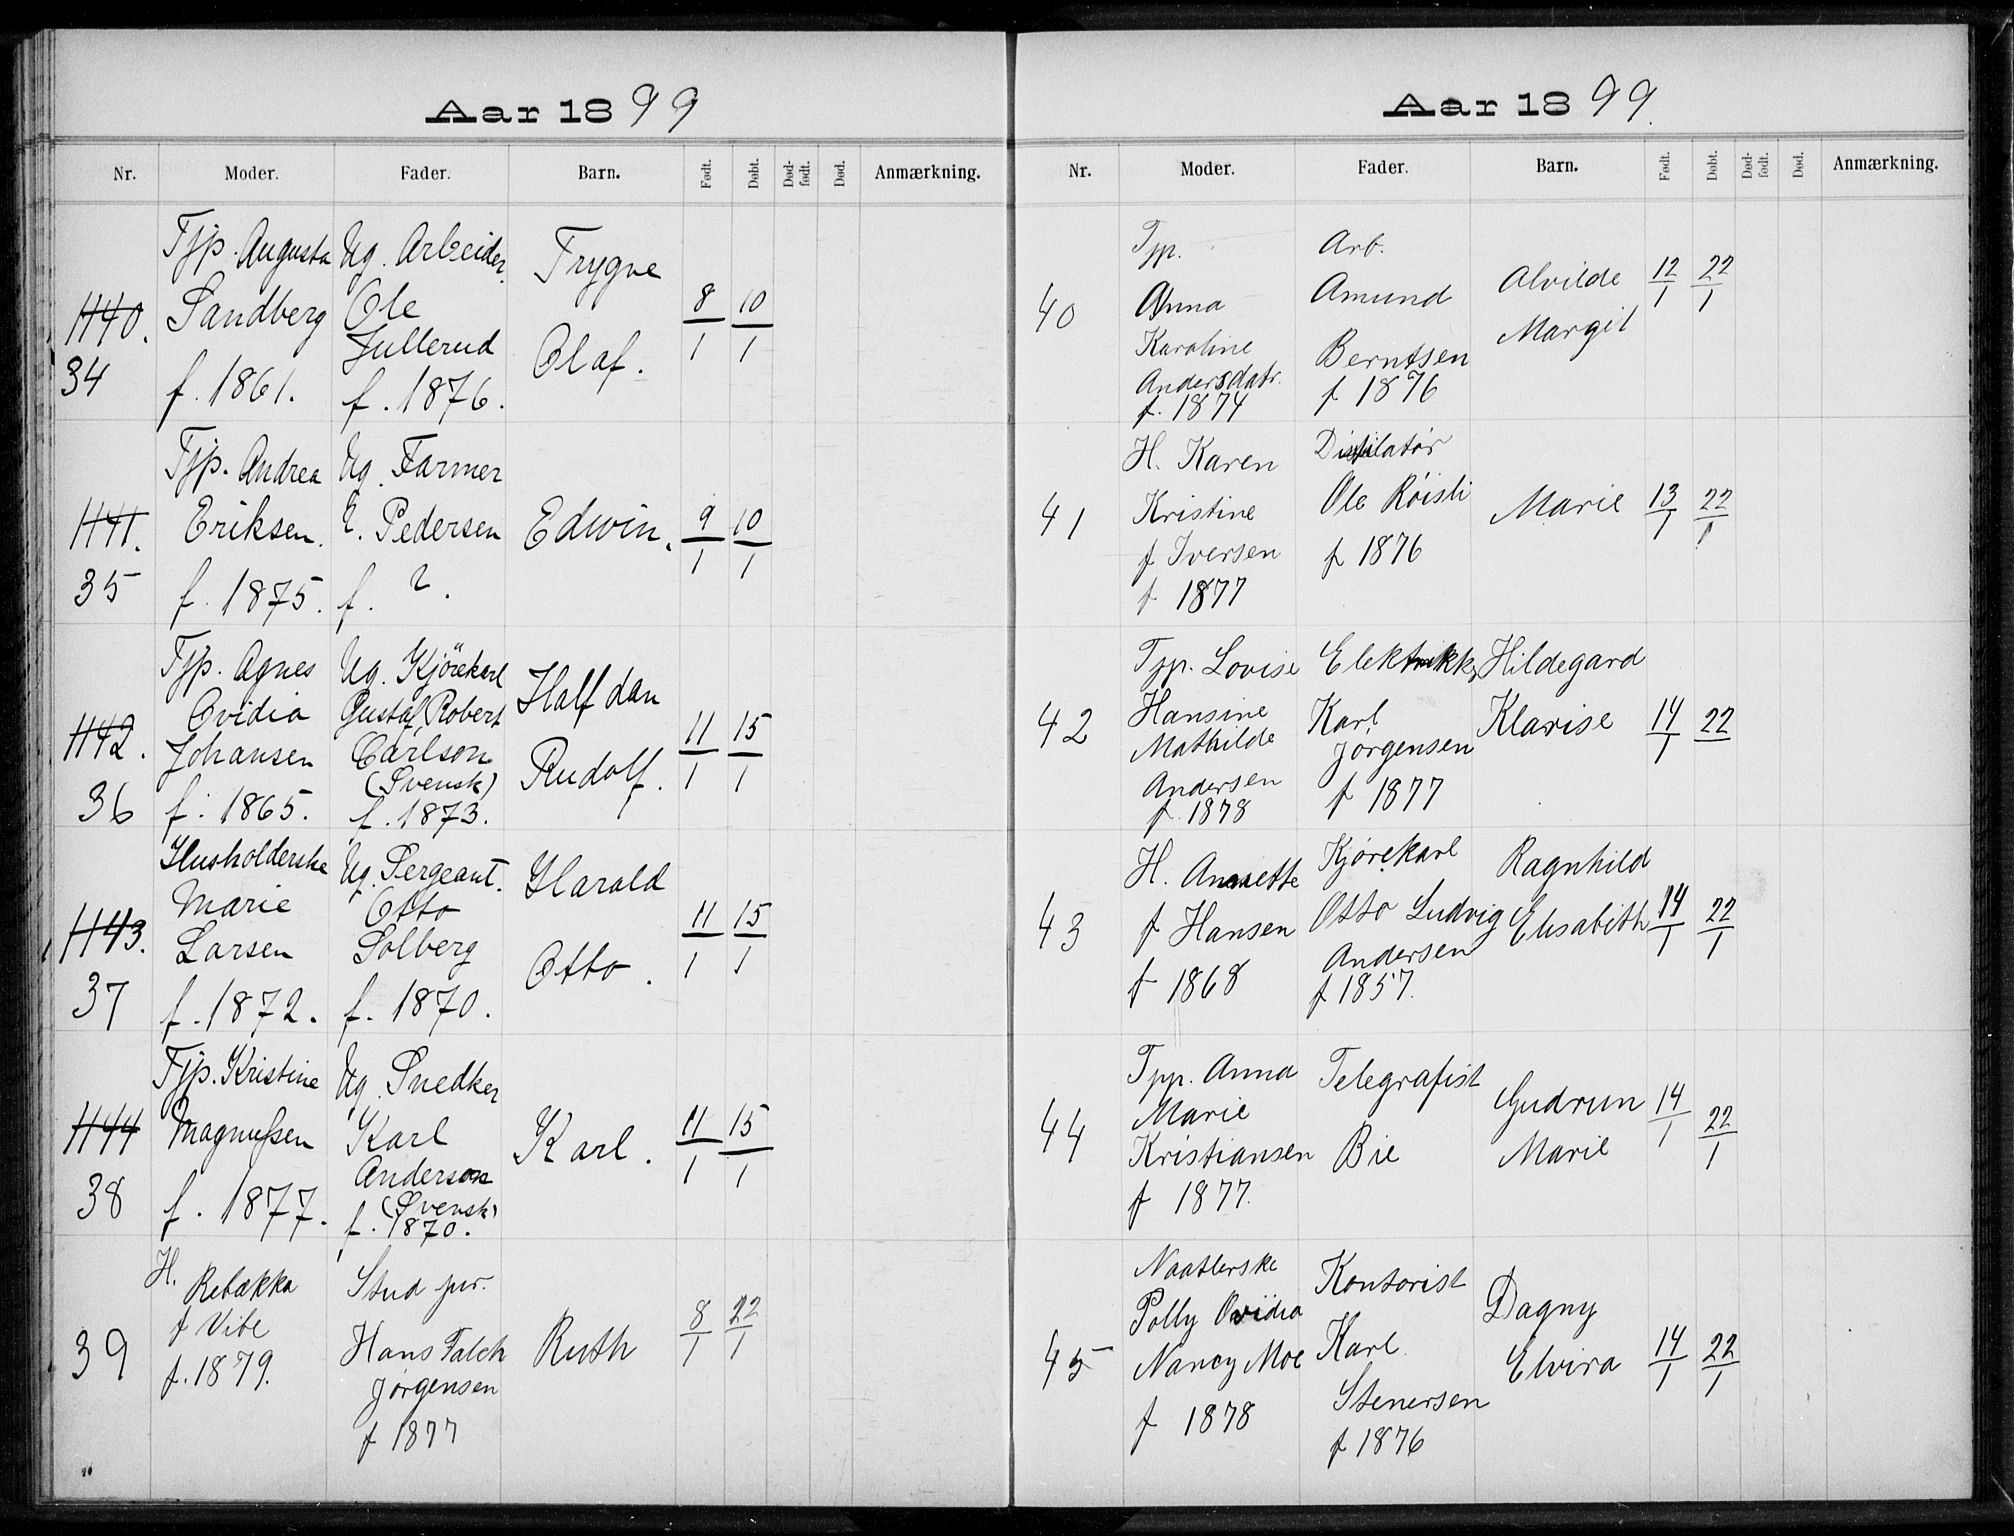 Aar 1899
Nr. Moder. Fader. Barn. Født. Døbt. Død-født. Død. Anmærkning.
1140. 34
Tjp. Augusta
Sandberg
f. 1861.
Ug. Arbeider.
Ole
Jullerud
f. 1876.
Trygve
Olaf.
8/1 10/1
1141. 35
Tjp. Andrea
Eriksen.
f. 1875.
Ug. Farmer
E. Pedersen
f. ?.
Edwin.
9/1 10/1
1142. 36
Tjp. Agnes
Ovidia
Johansen
f. 1865.
Ug. Kjörekarl
Gustaf Robert
Carlson
(Svensk)
f. 1873.
Halfdan
Rudolf.
11/1 15/1
1143. 37
Husholderske
Marie
Larsen
f. 1872.
Ug. Sergeant.
Otto
Solberg
f. 1870.
Harald
Otto.
11/1 15/1
1144 38
Tjp. Kristine
Magnussen
f. 1877.
Ug. Snedker
Karl
Anderson
(Svensk)
f. 1870.
Karl.
11/1 15/1
39
H. Rebekka
f Vibe
f. 1879.
Stud jur.
Hans Falch
Jørgensen
f 1877
Ruth
8/1 22/1
Aar 1899.
Nr. Moder. Fader. Barn. Født. Døbt. Død-født. Død. Anmærkning.
40
Tjp.
Anna
Karoline
Andersdatr.
f. 1874
Arb.
Amund
Berntsen
f 1876
Alvilde
Margit
12/1 22/1
41
H. Karen
Kristine
f Iversen
f 1877
Distilatør
Ole Røisli
f 1876
Marie
13/1 22/1
42
Tjp. Lovise
Hansine
Mathilde
Andersen
f. 1878
Elektrikker
Karl
Jørgensen
f 1877
Hildegard
Klarise
14/1 22
43
H. Annette
f Hansen
f 1868
Kjørekarl
Otto Ludvig
Andersen
f 1857.
Ragnhild
Elisabeth
14/1 22/1
44
Tjp. Anna
Marie
Kristiansen
f 1877.
Telegrafist
Bie
Gudrun
Marie
14/1 22/1
45
Naatlerske
Polly Ovidia
Nancy Moe
f 1878
Kontorist
Karl
Stenersen
f 1876
Dagny
Elvira
14/1 22/1